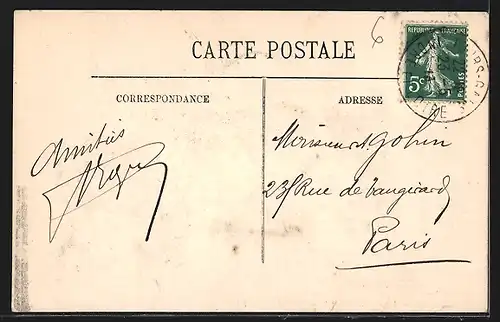 6
CARTE POSTALE
REPUBLIQUE FRANÇAISE
5c
POSTES
CORRESPONDANCE
ADRESSE
Amitiés
Monsieur Gohin
23 Rue de Vaugirard
Paris